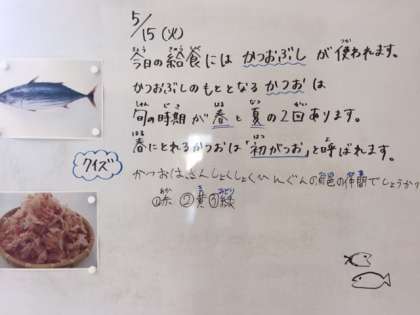 5/15(火)
今日の給食には かつおぶし が使われます。
かつおぶしのもととなる かつお は
旬の時期が春と夏の2回あります。
春にとれるかつおは「初がつお」と呼ばれます。
クイズ
かつおはさんしょくしょくひんぐんの何色の仲間でしょうか?
①赤 ②黄 ③緑